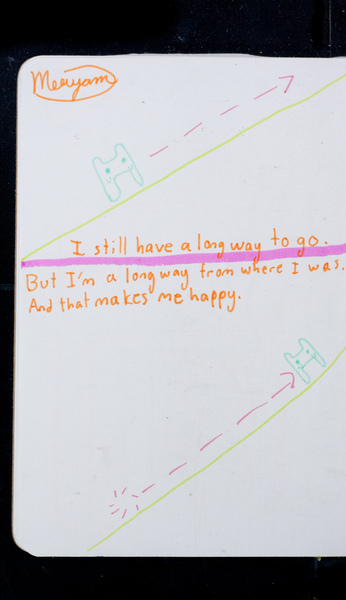 Meryam
I still have a long way to go.
But I'm a long way from where I was.
And that makes me happy.